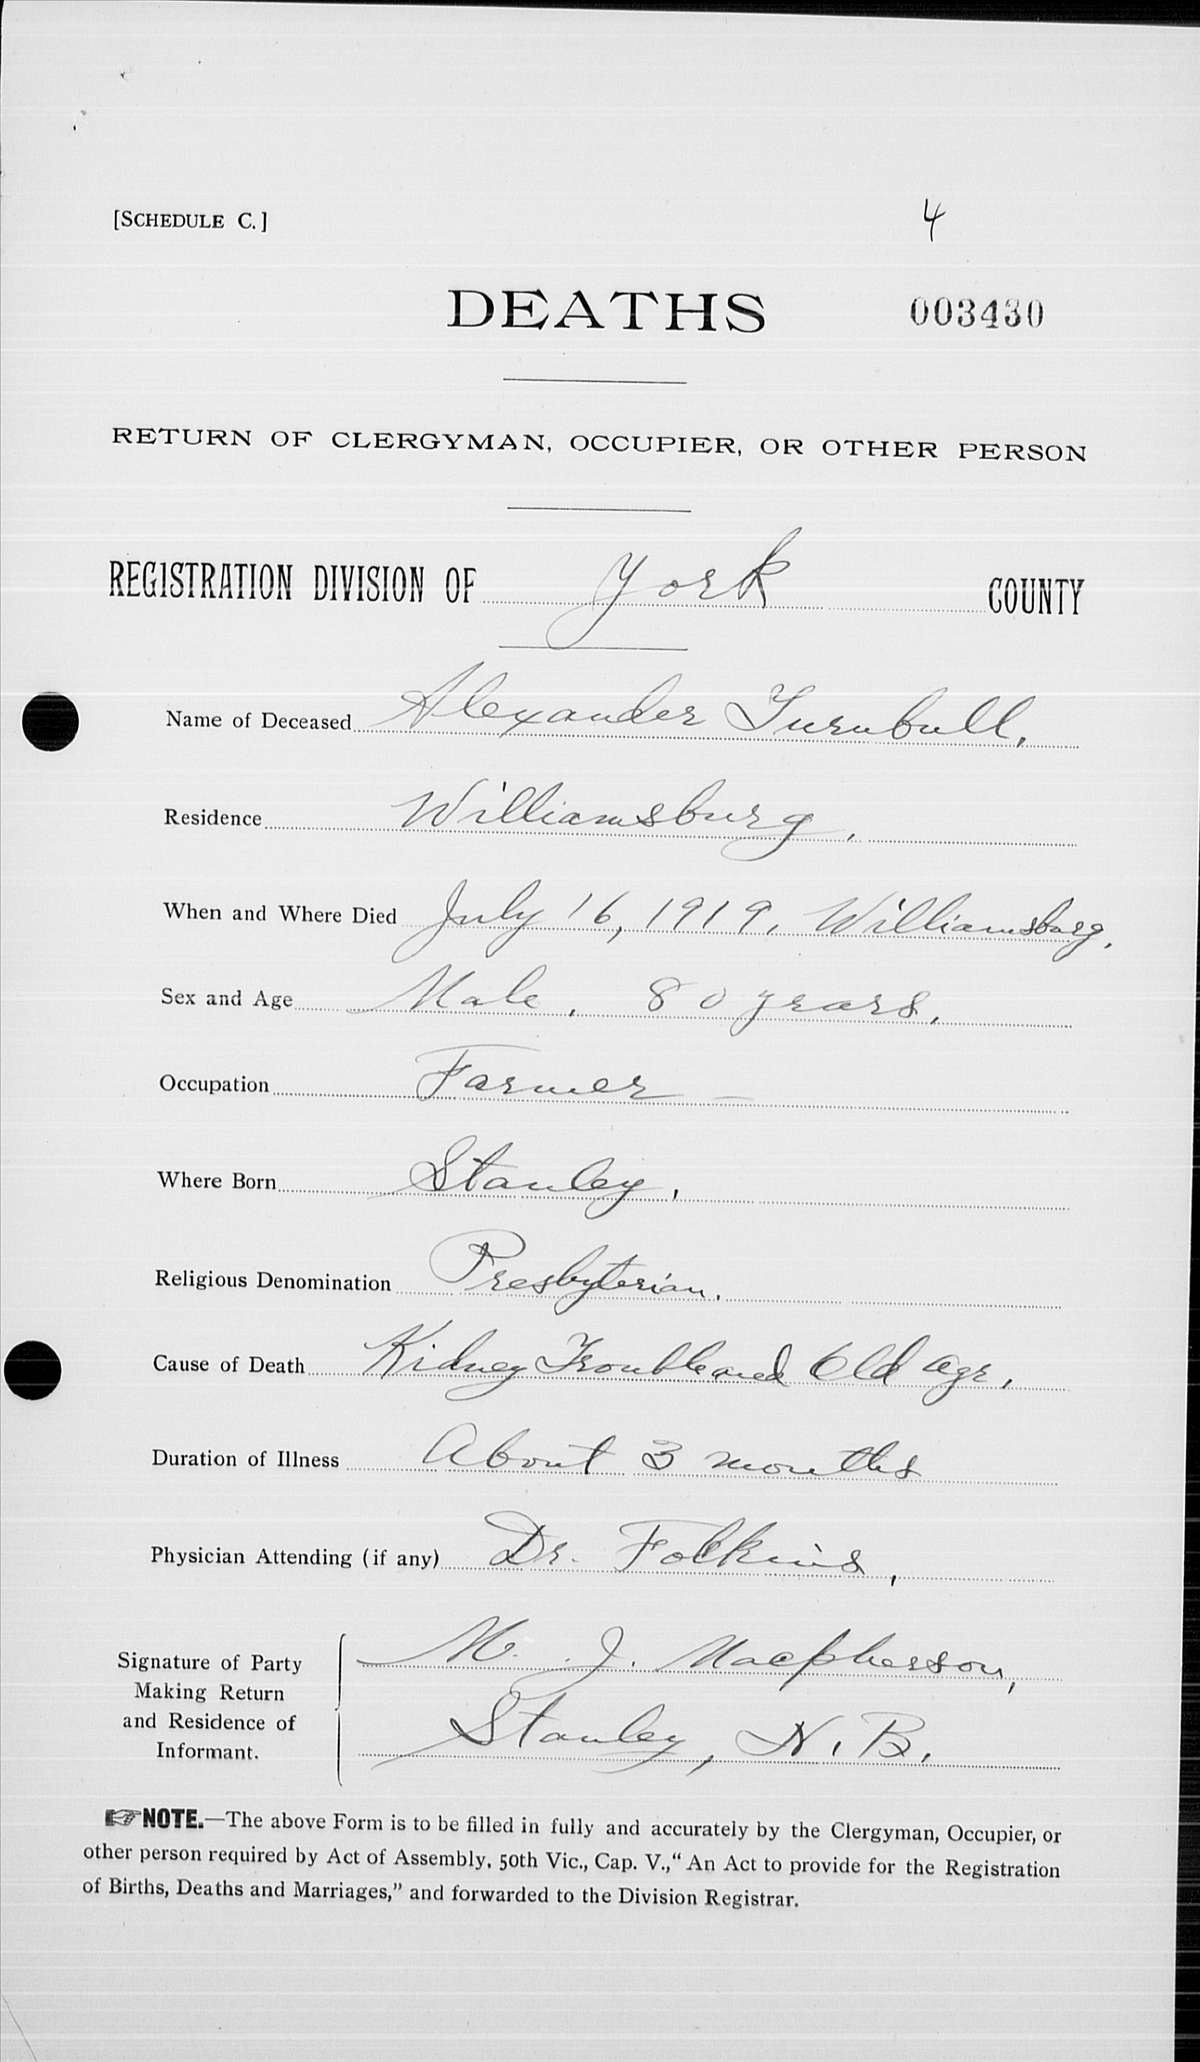 [SCHEDULE C.]
4
DEATHS
003430
RETURN OF CLERGYMAN, OCCUPIER, OR OTHER PERSON
REGISTRATION DIVISION OF York COUNTY
Name of Deceased Alexander Turnbull.
Residence Williamsburg.
When and Where Died July 16, 1919. Williamsburg.
Sex and Age Male. 80 years.
Occupation Farmer —
Where Born Stanley.
Religious Denomination Presbyterian.
Cause of Death Kidney Trouble and Old Age.
Duration of Illness About 3 months
Physician Attending (if any) Dr. Folkins,
Signature of Party M. J. Macpherson,
Making Return
and Residence of Stanley, N. B.
Informant.
☞NOTE.—The above Form is to be filled in fully and accurately by the Clergyman, Occupier, or
other person required by Act of Assembly, 50th Vic., Cap. V., “ An Act to provide for the Registration
of Births, Deaths and Marriages,” and forwarded to the Division Registrar.